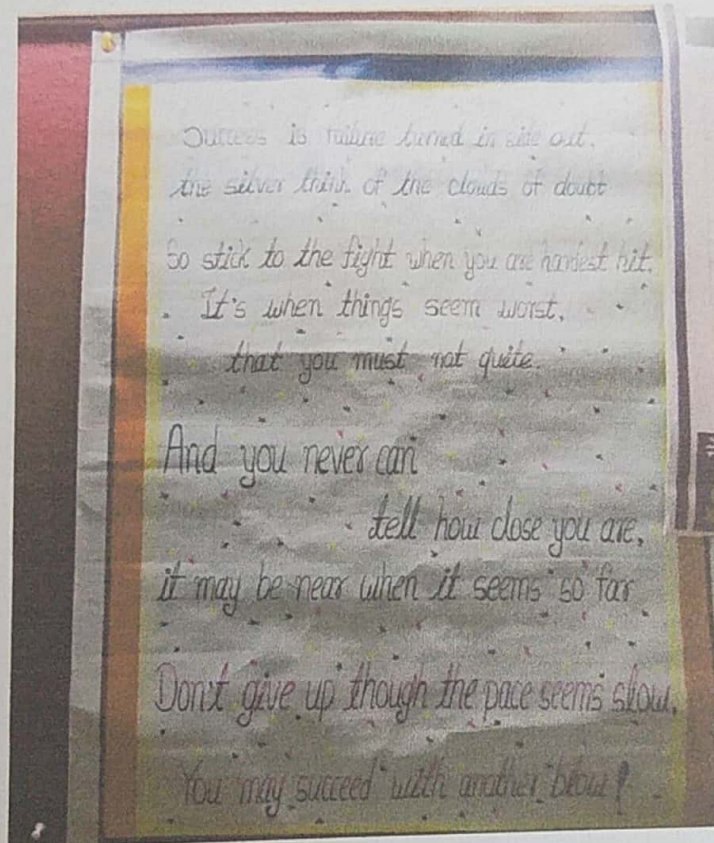 Success is failure turned in side out.
the silver think of the clouds of doubt
So stick to the fight when you are hardest hit.
It's when things seem worst,
that you must not quite.
And you never can
tell how close you are,
it may be near when it seems so far
Don't give up though the pace seems slow,
You may succeed with another blow!